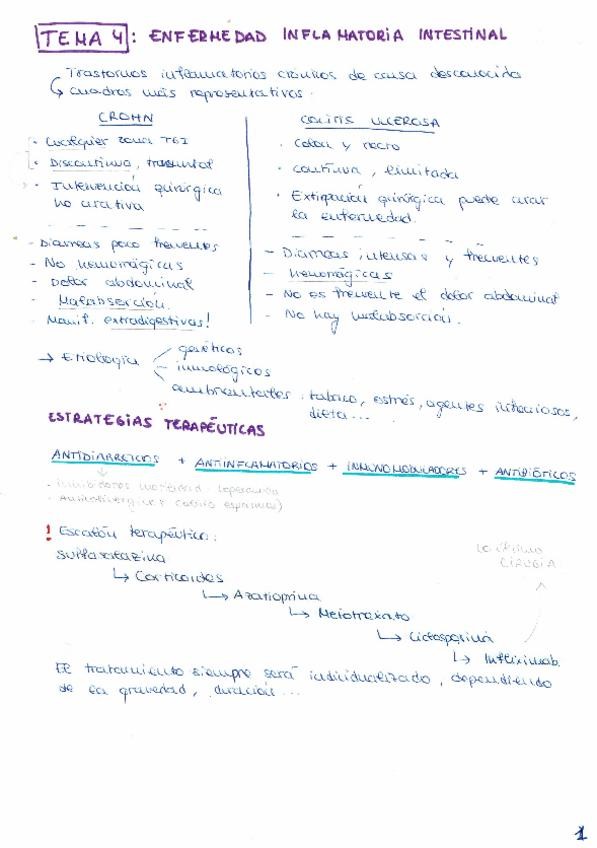 TEMA 4: ENFERMEDAD INFLAMATORIA INTESTINAL
Trastornos inflamatorios crónicos de causa desconocida
↳ cuadros más representativos.
CROHN
· Cualquier zona TGI
· Discontinua, transmural
· Intervención quirúrgica
no curativa
- Diarreas poco frecuentes
- No hemorrágicas
- Dolor abdominal
- Malabsorción.
- Manif. extradigestivas!
COLITIS ULCEROSA
· Colon y recto
· continua, limitada
· Extirpación quirúrgica puede curar
la enfermedad.
- Diarreas intensas y frecuentes
- hemorrágicas
- No es frecuente el dolor abdominal
- No hay malabsorción.
→ Etiología
genéticos
inmológicos
ambientales: tabaco, estrés, agentes infecciosos,
dieta...
ESTRATEGIAS TERAPÉUTICAS
ANTIDIARREICOS + ANTIINFLAMATORIOS + INMUNOMODULADORES + ANTIBIÓTICOS
- Inhibidores motilidad: loperamida
- Anticolinérgicos (casos espasmos)
! Escalón terapéutico:
sulfasalazina
↳ Corticoides
↳ Azatioprina
↳ Metotrexato
↳ Ciclosporina
↳ Infliximab.
lo último
CIRUGÍA
El tratamiento siempre será individualizado, dependiendo
de la gravedad, duración...
1